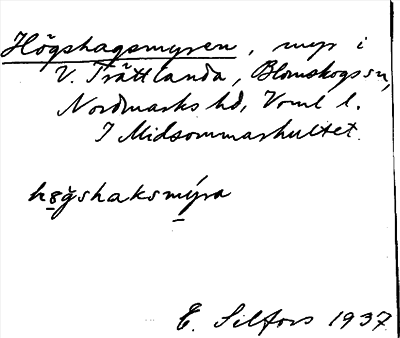 Högshagsmyren, myr i
V. Trättlanda, Blomskogs sn,
Nordmarks hd, Vrml l.
I Midsommarhultet.
høgshaksmýra
E. Silfors 1937